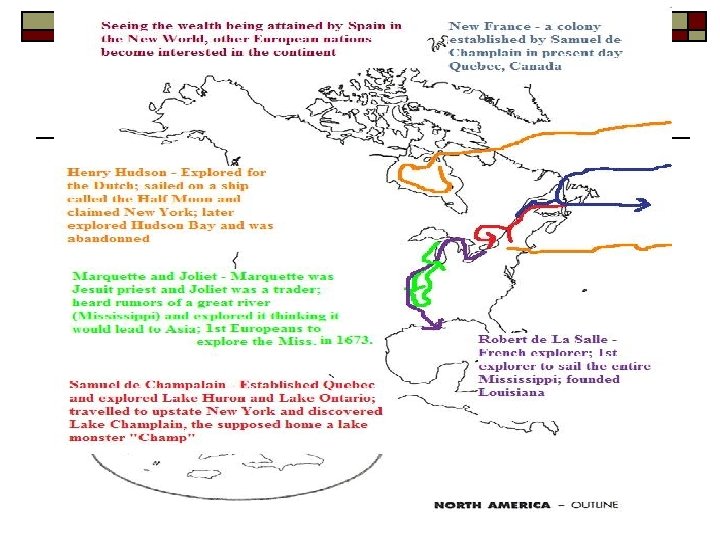 Seeing the wealth being attained by Spain in
the New World, other European nations
become interested in the continent
New France - a colony
established by Samuel de
Champlain in present day
Quebec, Canada
Henry Hudson - Explored for
the Dutch; sailed on a ship
called the Half Moon and
claimed New York; later
explored Hudson Bay and was
abandonned
Marquette and Joliet - Marquette was
Jesuit priest and Joliet was a trader;
heard rumors of a great river
(Mississippi) and explored it thinking it
would lead to Asia; 1st Europeans to
explore the Miss. in 1673.
Robert de La Salle -
French explorer; 1st
explorer to sail the entire
Mississippi; founded
Louisiana
Samuel de Champalain - Established Quebec
and explored Lake Huron and Lake Ontario;
travelled to upstate New York and discovered
Lake Champlain, the supposed home a lake
monster "Champ"
NORTH AMERICA – OUTLINE